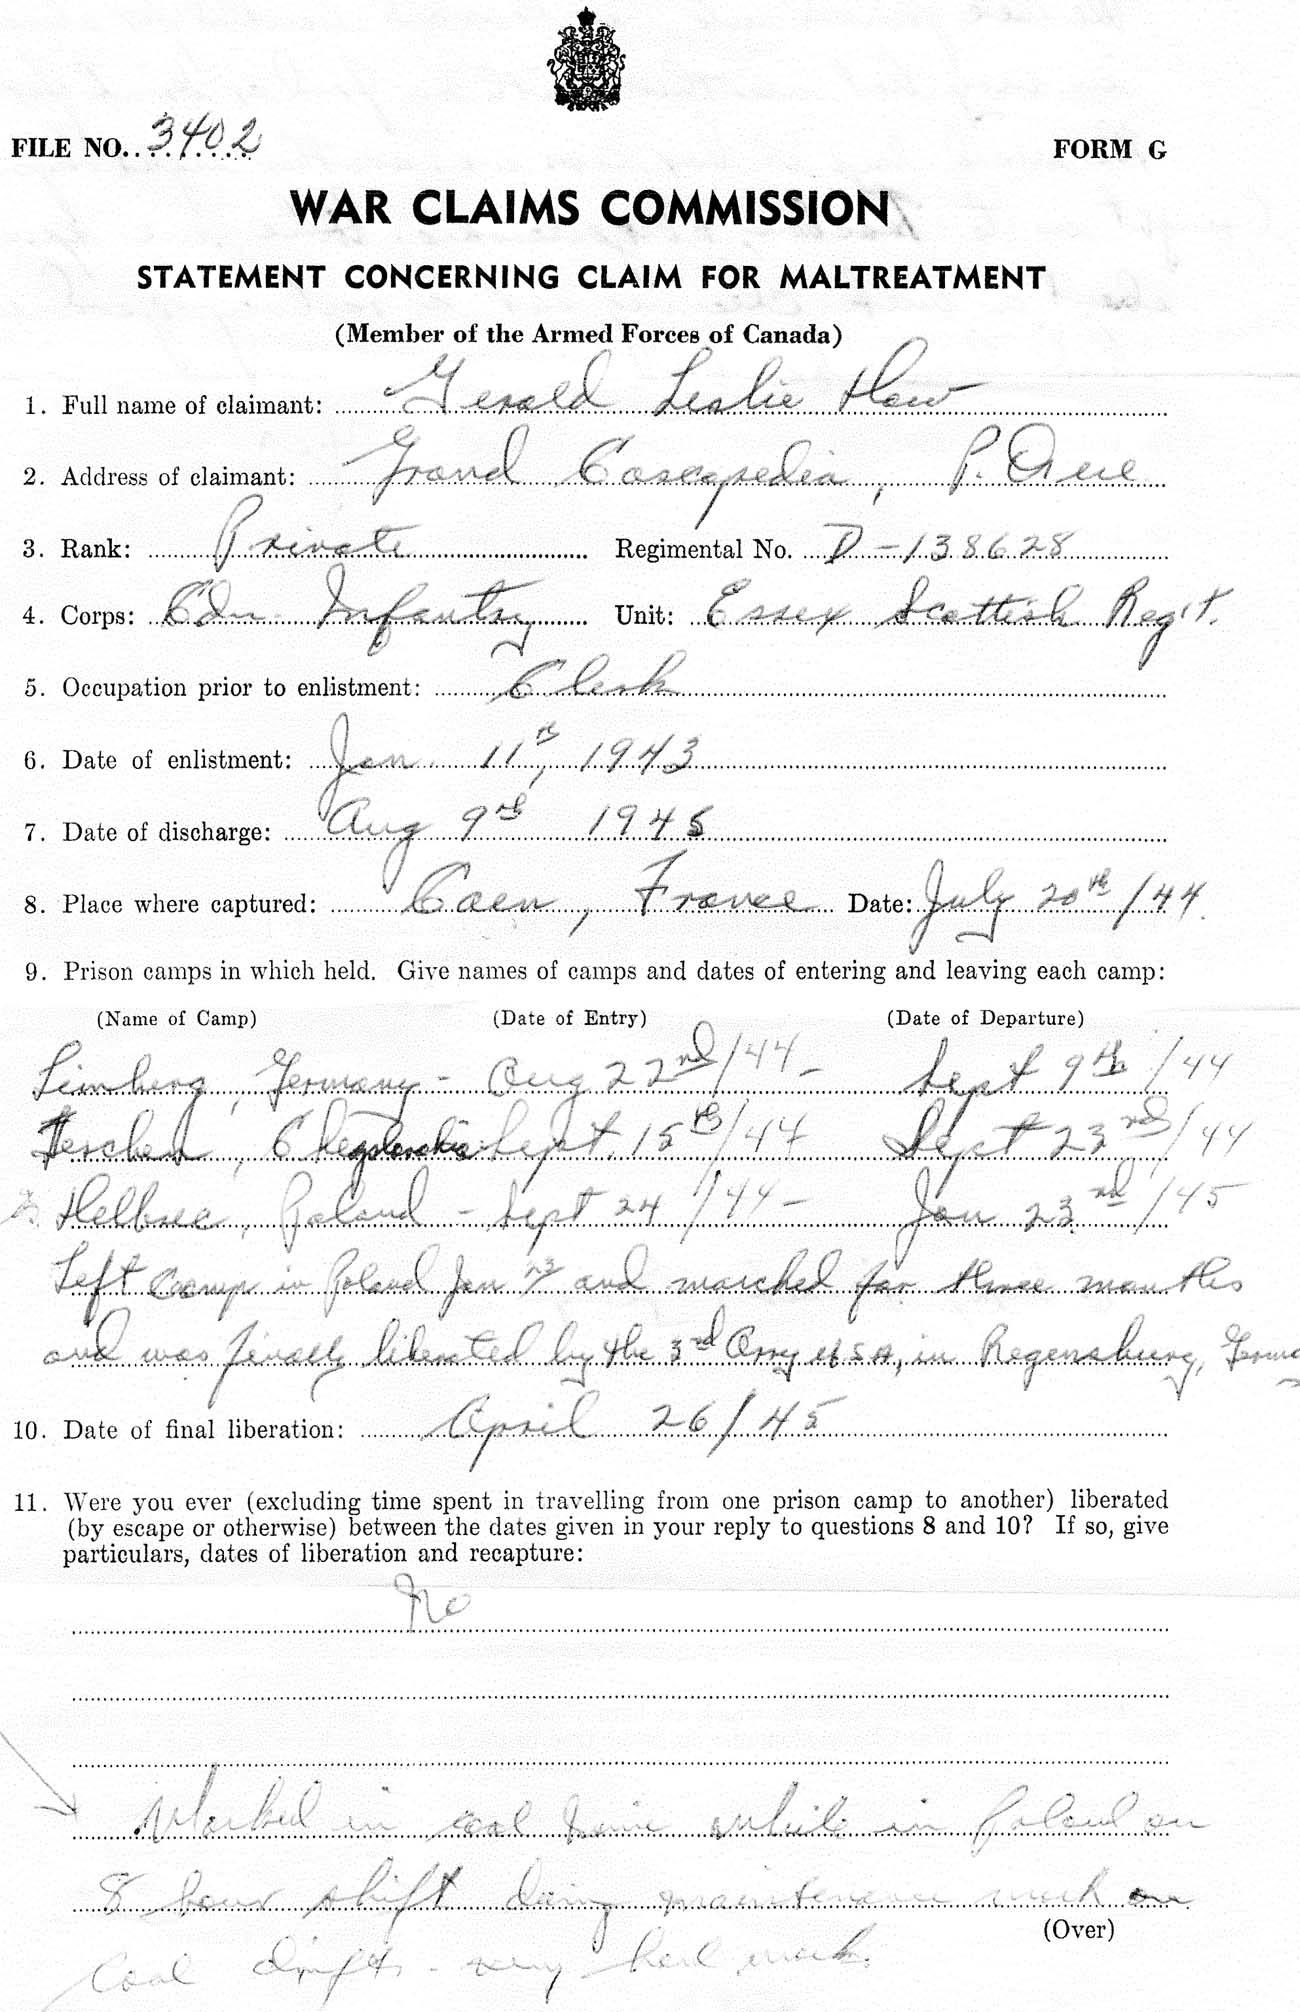 FILE NO. 3402
FORM G
WAR CLAIMS COMMISSION
STATEMENT CONCERNING CLAIM FOR MALTREATMENT
(Member of the Armed Forces of Canada)
1. Full name of claimant: Gerald Leslie How
2. Address of claimant: Grand Cascapedia, P. Que
3. Rank: Private Regimental No. D-138628
4. Corps: Cdn Infantry Unit: Essex Scottish Reg't.
5. Occupation prior to enlistment: Clerk
6. Date of enlistment: Jan 11th, 1943
7. Date of discharge: Aug 9th 1945
8. Place where captured: Caen, France Date: July 20th/44.
9. Prison camps in which held. Give names of camps and dates of entering and leaving each camp:
(Name of Camp) (Date of Entry) (Date of Departure)
Limberg, Germany - Aug 22nd/44 - Sept 9th/44
Teschen, Sept. 15th/44 Sept 23rd/44
Poland - Sept 24/44 - Jan 23rd/45
Left Camp in Poland Jan 23 and marched for three months
and was finally liberated by the 3rd Army USA, in Regensburg,
10. Date of final liberation: April 26/45
11. Were you ever (excluding time spent in travelling from one prison camp to another) liberated
(by escape or otherwise) between the dates given in your reply to questions 8 and 10? If so, give
particulars, dates of liberation and recapture:
No
Worked in coal mine while in Poland on
8 hour shift doing maintenance work on
(Over)
coal - very hard work.